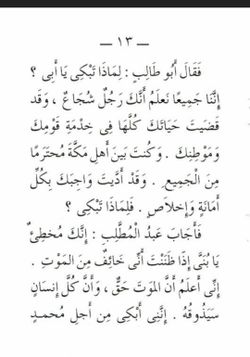 — ١٣ —
فَقَالَ أَبُو طَالِبٍ : لِمَاذَا تَبْكِى يَا أَبِى ؟
إِنَّنَا جَمِيعًا نَعلَمُ أَنَّكَ رَجُلٌ شُجَاعٌ ، وَقَد
قَضَيتَ حَيَاتَكَ كُلَّهَا فِى خِدْمَةِ قَوْمِكَ
وَمَوْطِنِكَ . وَكُنتَ بَينَ أَهلِ مَكَّةَ مُحتَرَمًا
مِنَ الْجَمِيعِ . وَقَد أَدَّيتَ وَاجِبَكَ بِكُلِّ
أَمَانَةٍ وَإِخلَاصٍ . فَلِمَاذَا تَبْكِى ؟
فَأَجَابَ عَبدُ الْمُطَّلِبِ : إِنَّكَ مُخطِئٌ
يَا بُنَىَّ إِذَا ظَنَنْتَ أَنِّى خَائِفٌ مِنَ المَوتِ .
إِنِّى أَعلَمُ أَنَّ المَوتَ حَقٌّ ، وَأَنَّ كُلَّ إِنسَانٍ
سَيَذُوقُهُ . إِنَّنِى أَبْكِى مِن أَجلِ مُحَمَّدٍ